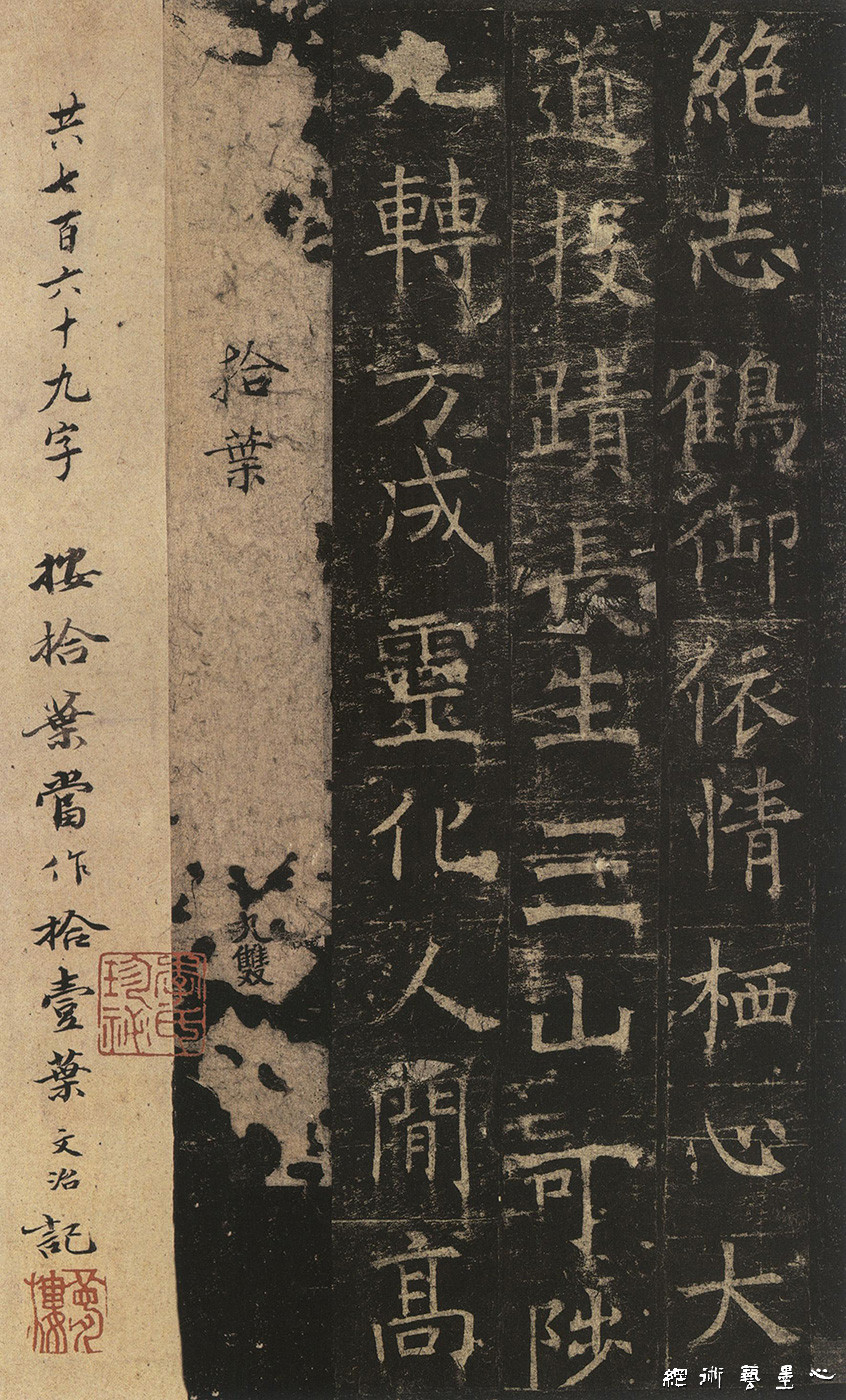 絶志鶴御依情栖心大
道投蹟長生三山可陟
九轉方成靈化人間高
拾葉
九雙
共七百六十九字 按拾葉當作拾壹葉文治記
夢樓
心墨藝術網